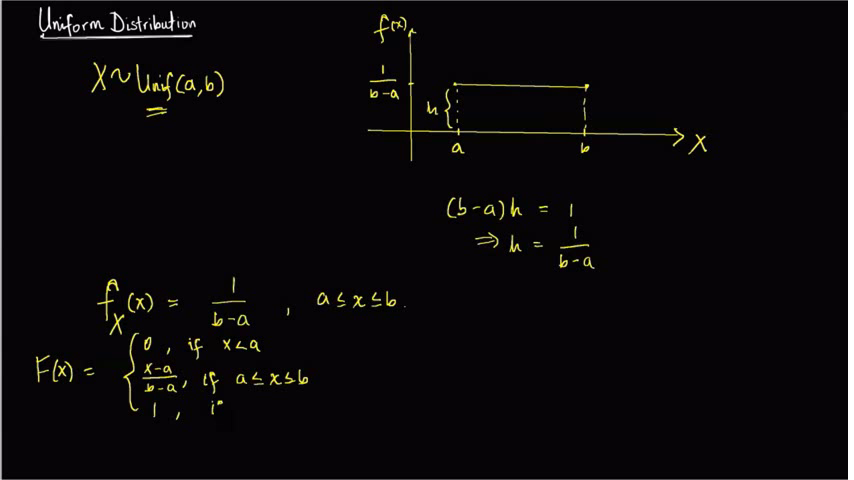 Uniform Distribution
X ~ Unif(a,b)
f(x)
1/(b-a)
h
a
b
X
(b-a)h = 1
⇒ h = 1/(b-a)
f_X(x) = 1/(b-a) , a ≤ x ≤ b.
F(x) = { 0 , if x < a
(x-a)/(b-a), if a ≤ x ≤ b
1 , i